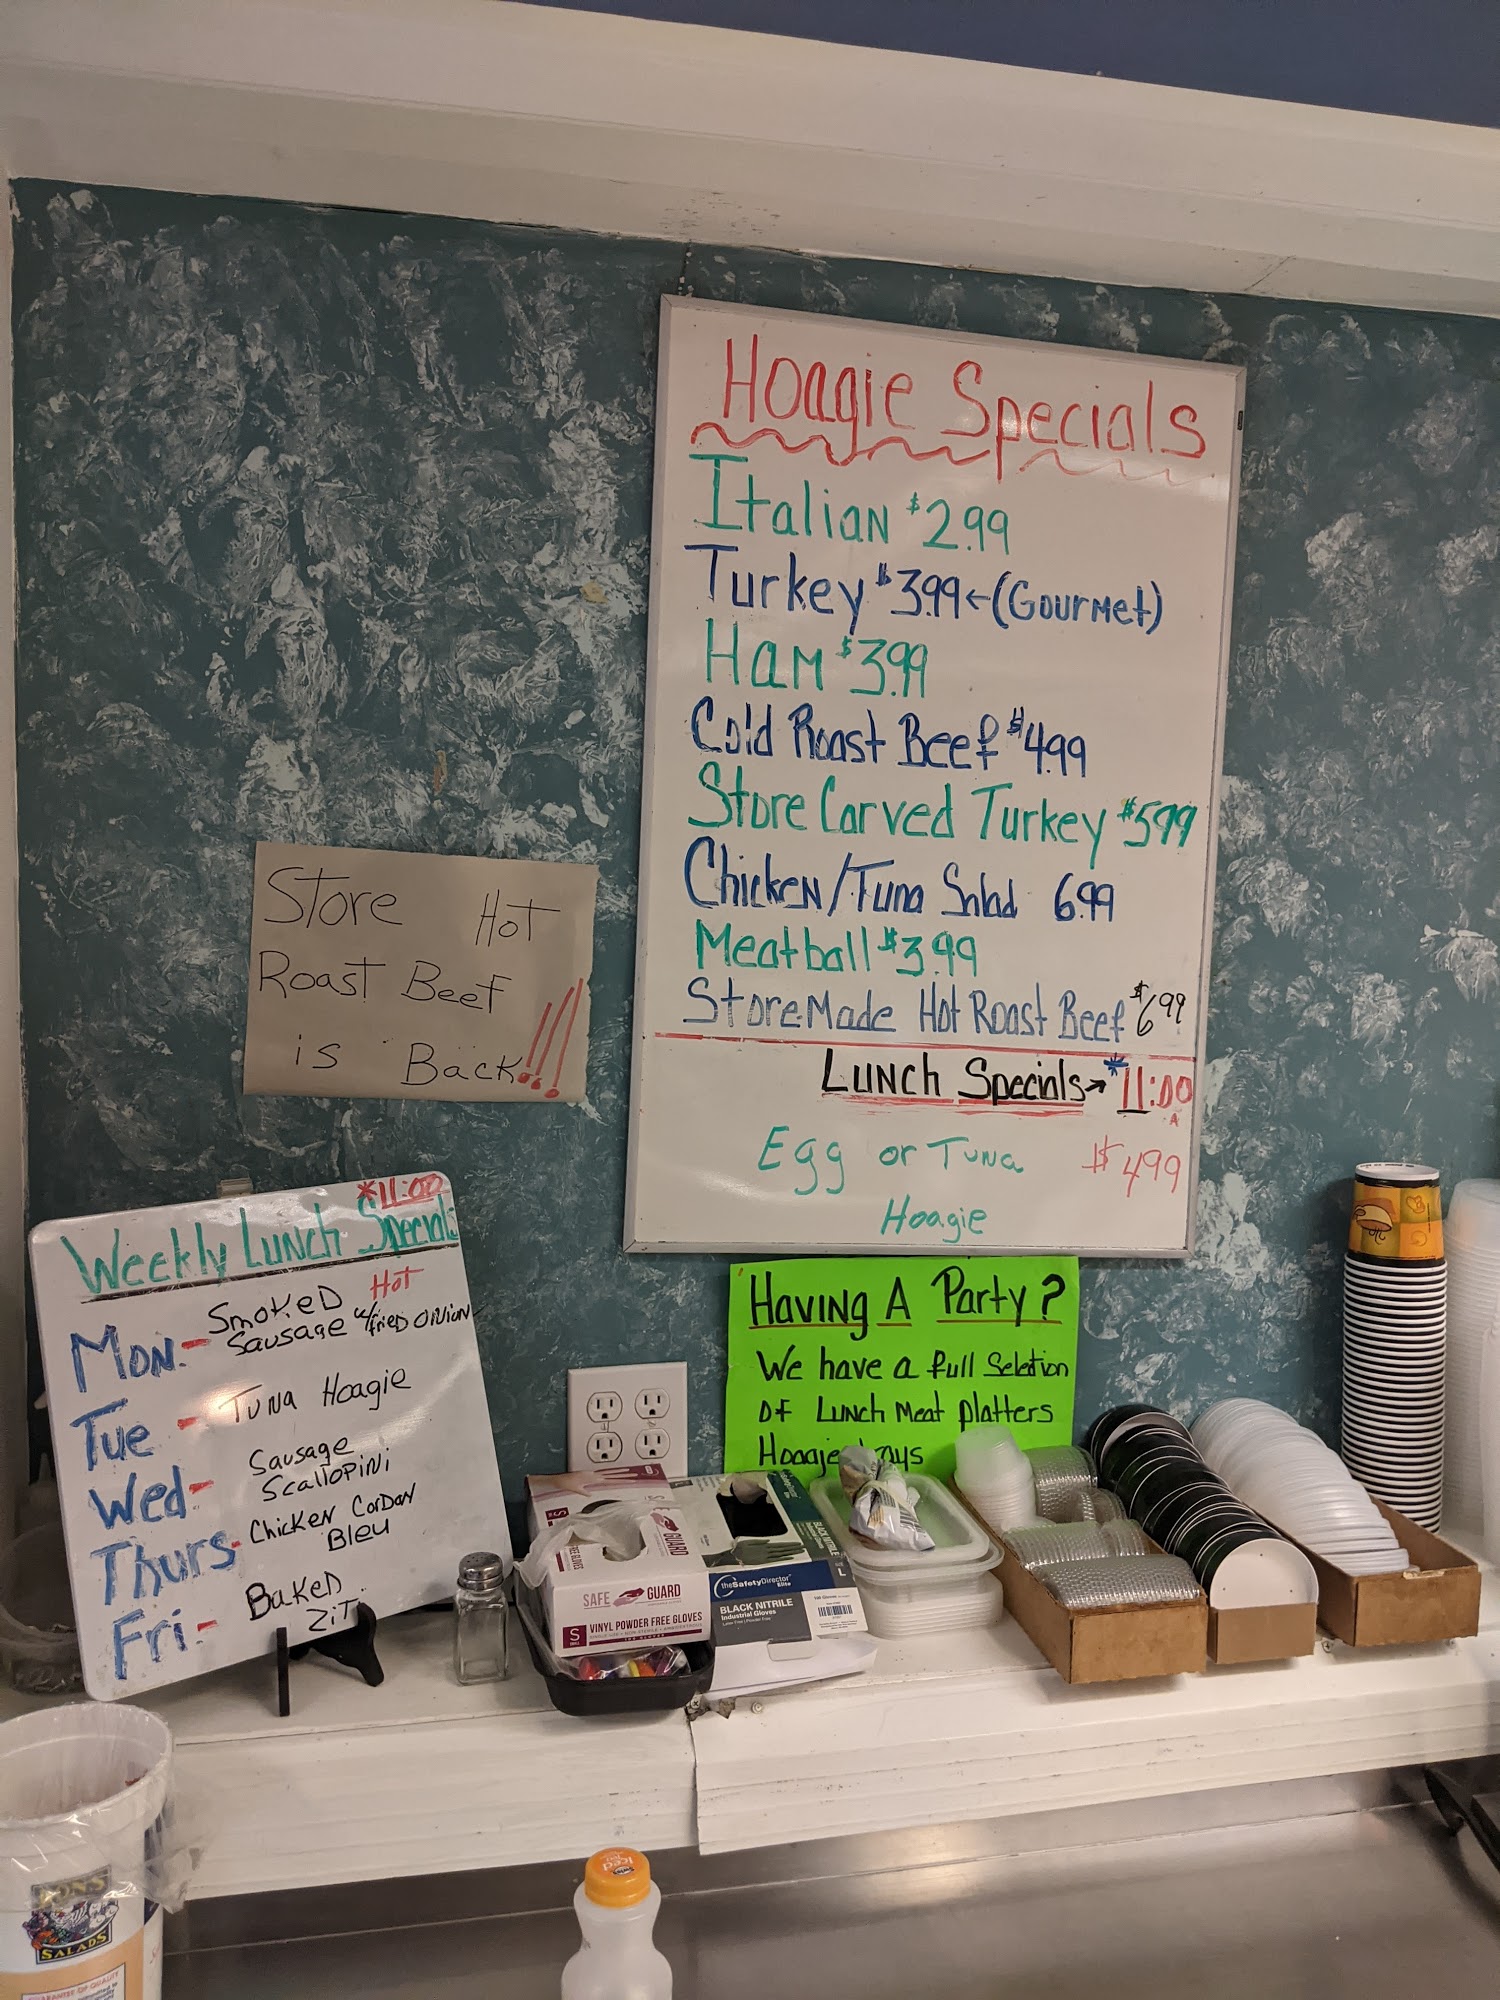 Hoagie Specials
Italian $2.99
Turkey $3.99←(Gourmet)
Ham $3.99
Cold Roast Beef $4.99
Store Carved Turkey $5.99
Chicken/Tuna Salad 6.99
Meatball $3.99
Store Made Hot Roast Beef $6.99
Lunch Specials→ *11:00
A
Egg or Tuna $4.99
Hoagie
Store Hot
Roast Beef
is Back!!!
*11:00
Weekly Lunch Specials
Hot
Mon.- Smoked
Sausage w/fried onion
Tue - Tuna Hoagie
Wed- Sausage
Scallopini
Thurs- Chicken Cordon
Bleu
Fri- Baked
Zit
Having A Party?
We have a full Selection
Of Lunch Meat Platters
Hoagie
SAFE GUARD
S VINYL POWDER FREE GLOVES
GUARD
theSafetyDirector
Elite
BLACK NITRILE
Industrial Gloves
L
SALADS
GUARANTEE OF QUALITY
Iced